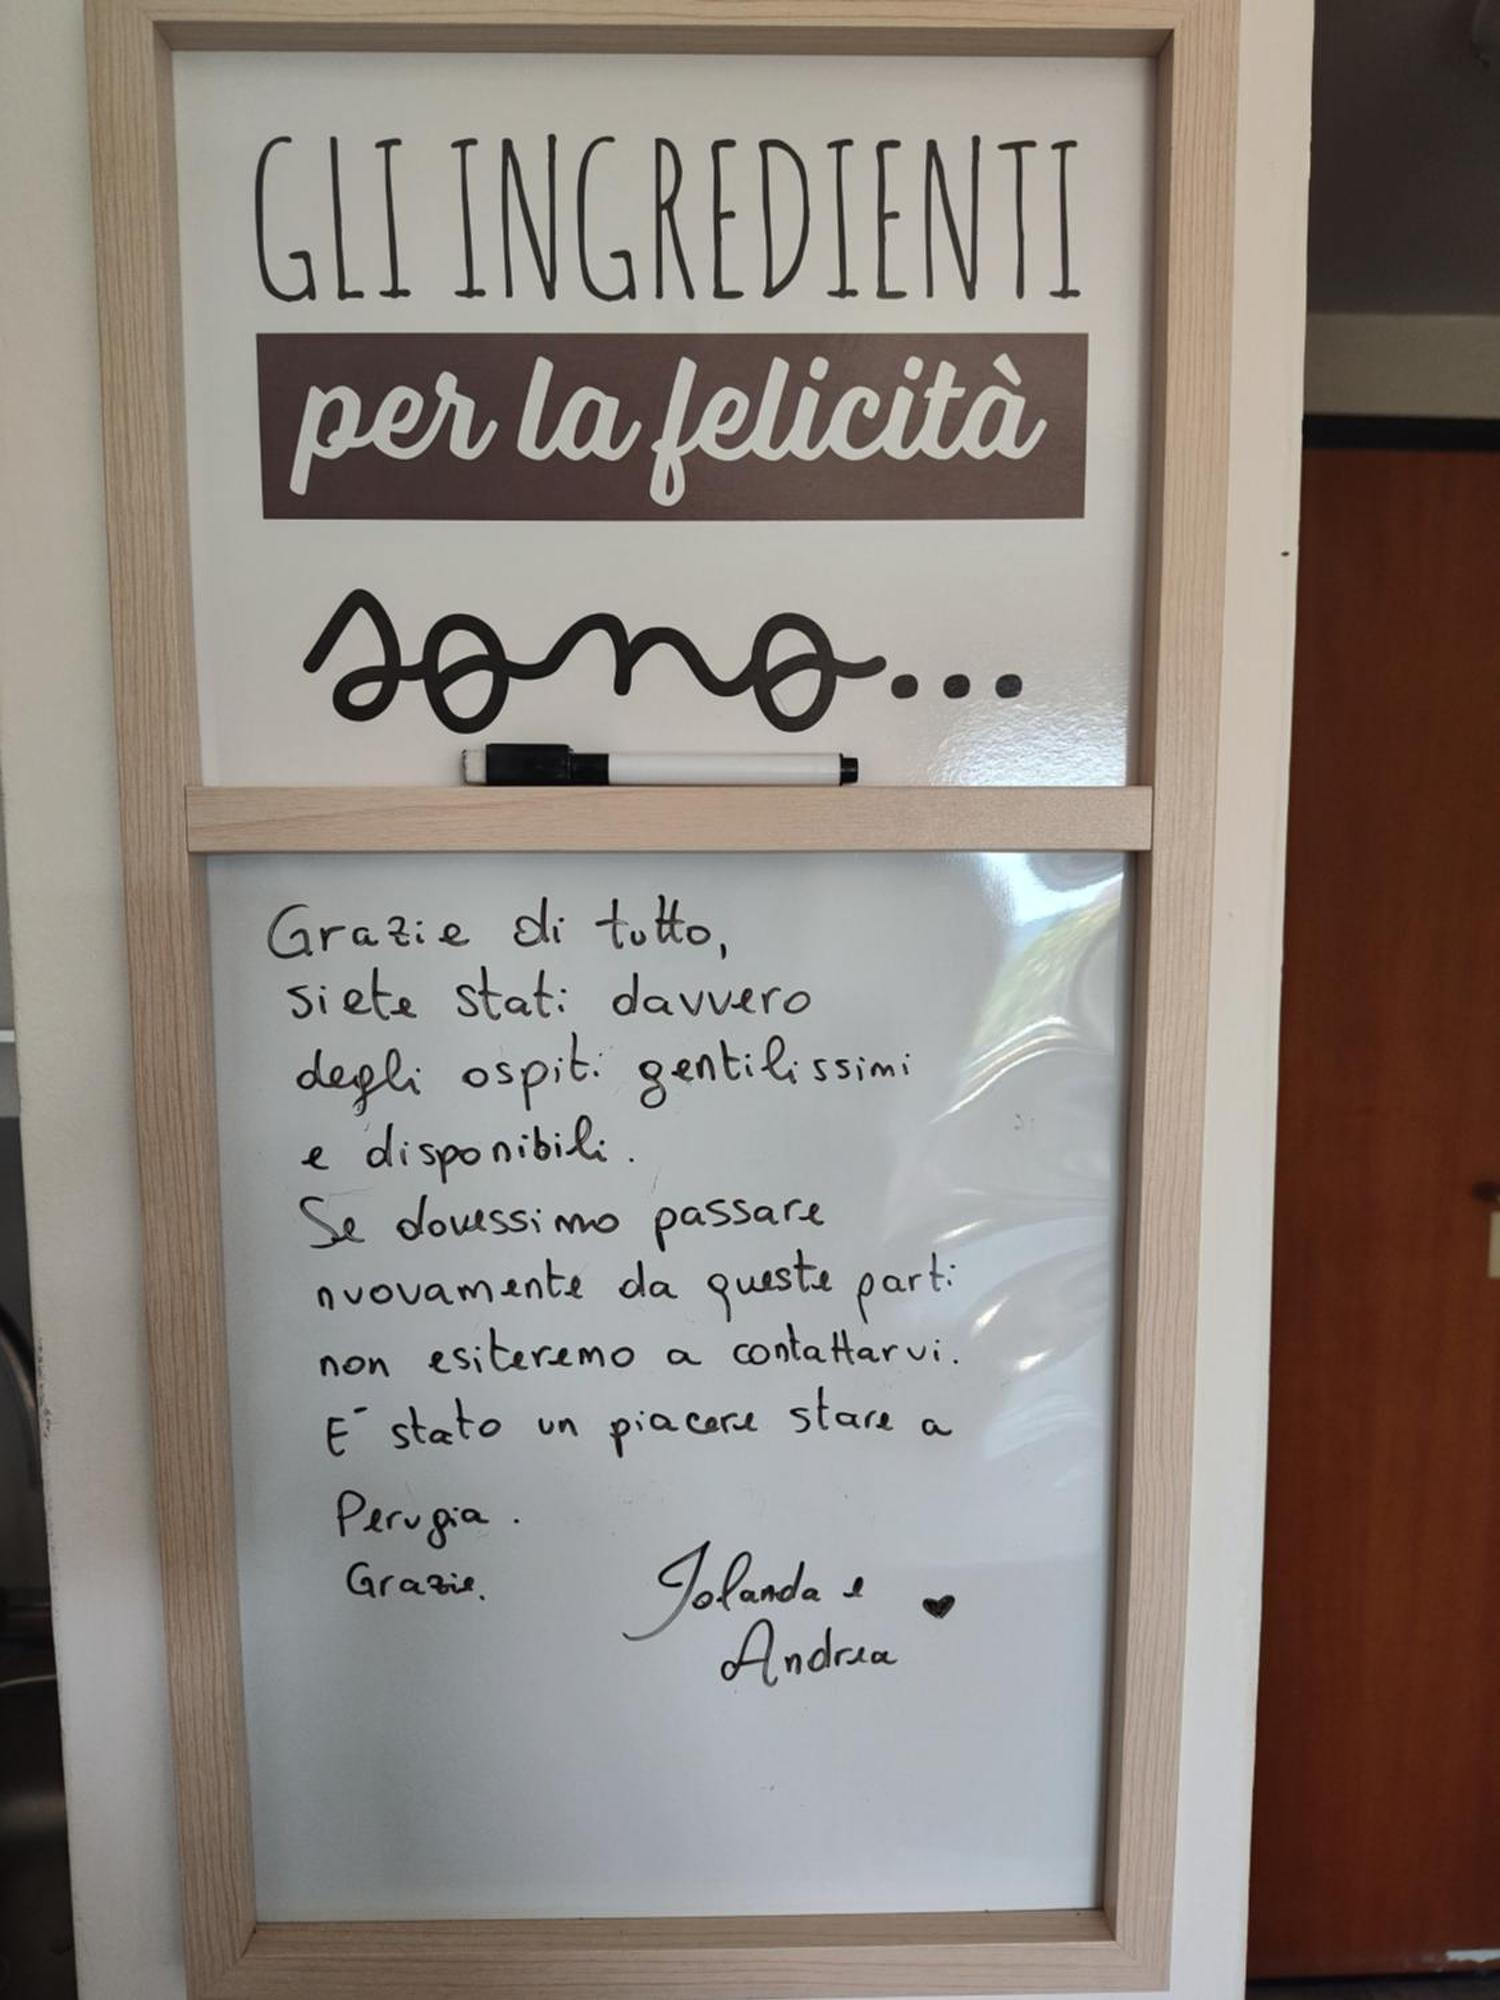 GLI INGREDIENTI
per la felicità
sono...
Grazie di tutto,
siete stati davvero
degli ospiti gentilissimi
e disponibili.
Se dovessimo passare
nuovamente da queste parti
non esiteremo a contattarvi.
E' stato un piacere stare a
Perugia.
Grazie.
Iolanda e ♥
Andrea